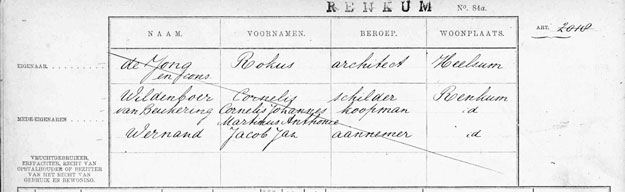 RENKUM
No. 84a.
NAAM. VOORNAMEN. BEROEP. WOONPLAATS.
ART. 2018
EIGENAAR. de Jong Rokus architect Heelsum
en cons
Wildenboer Cornelis schilder Renkum
van Beukering Cornelis Johannes koopman id
MEDE-EIGENAREN Martinus Anthonie
Wernand Jacob Jan aannemer id
VRUCHTGEBRUIKER,
ERFPACHTER, RECHT VAN
OPSTALHOUDER OF BEZITTER
VAN HET RECHT VAN
GEBRUIK EN BEWONING.